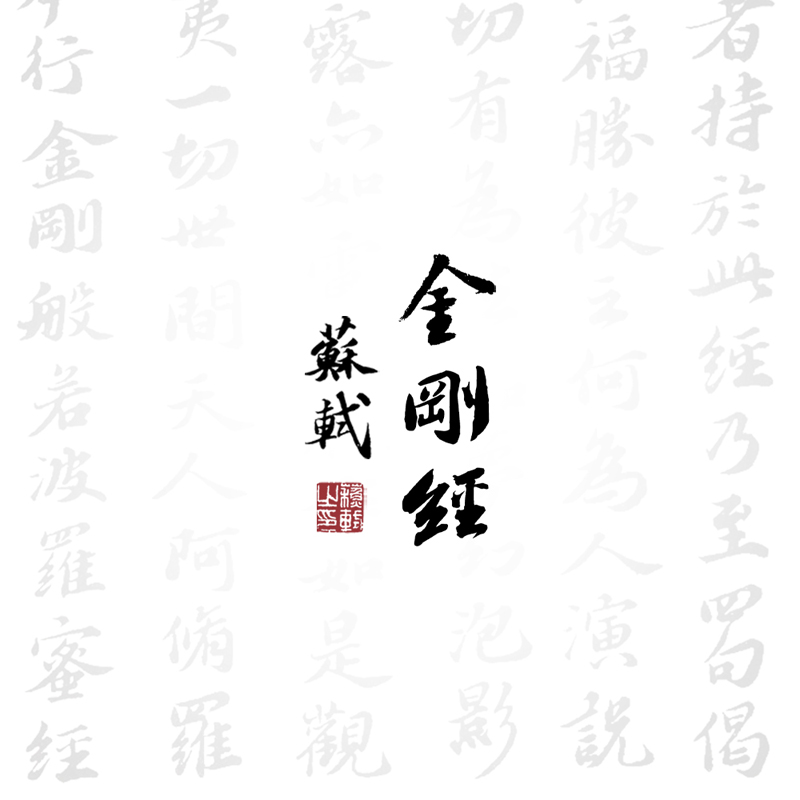 金剛經
蘇軾
蘇軾之印
者持於此經乃至四句偈
福勝彼云何為人演說
切有為幻泡影
露亦如如是觀
夷一切世間天人阿脩羅
行金剛般若波羅蜜經